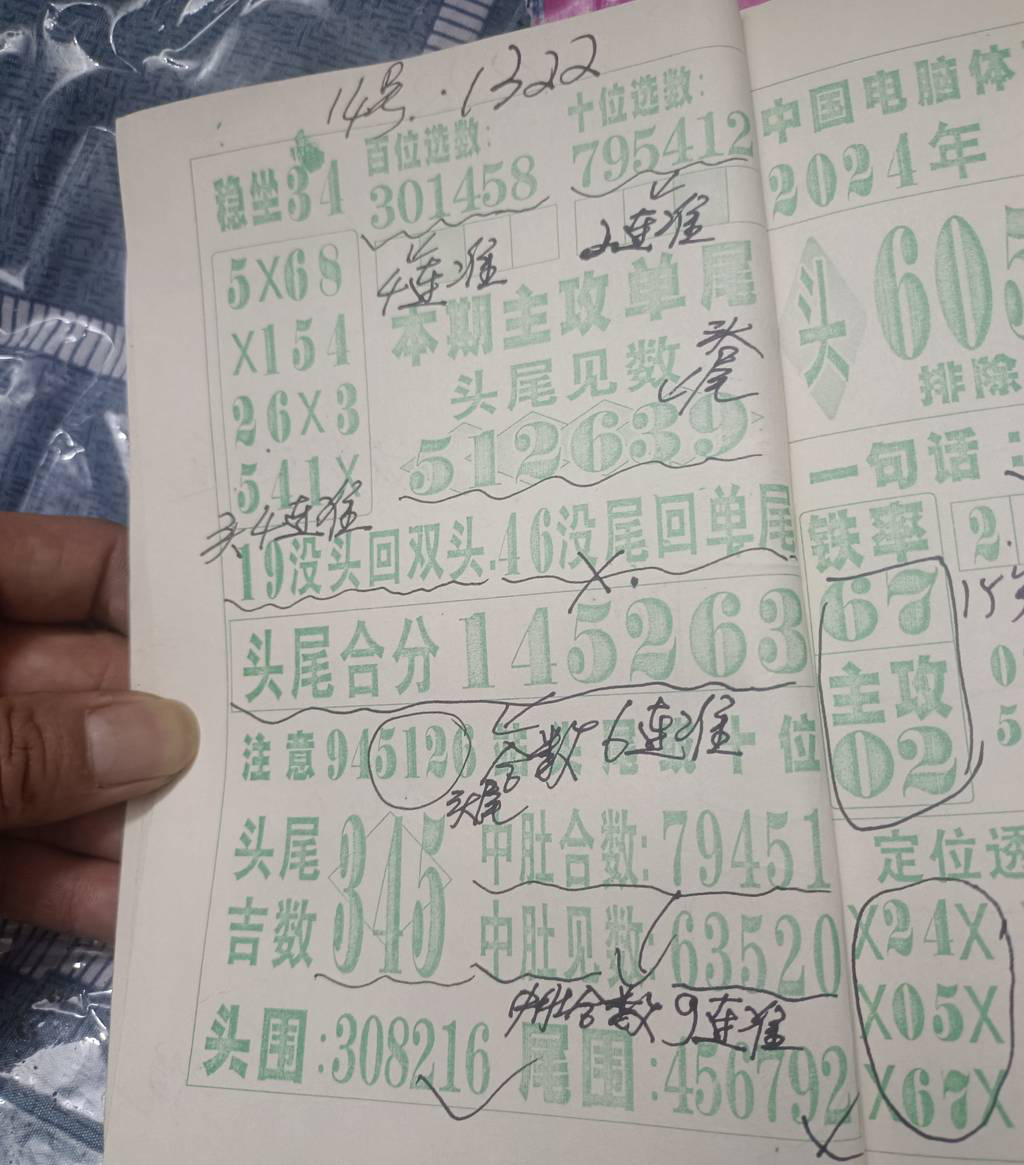 14号.1322
稳坐34
百位选数:
301458
十位选数:
795412
4连准
2连准
5X68
X154
26X3
541X
本期主攻单尾
头尾见数
头尾
512639
头4连准
19没头回双头.46没尾回单尾
头尾合分145263
注意945120
十位
合数6连准
头尾
头尾
吉数
345
中肚合数:79451
中肚见数:63520
中肚合数9连准
头围:308216
尾围:456792
中国电脑体
2024年
头大
605
排除
一句话:
铁率
2.
67
主攻
02
0
5
定位透
X24X
X05X
X67X